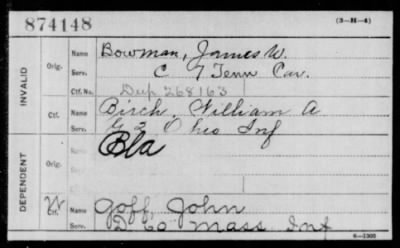 874148
(3-H-4)
INVALID
Orig.
Name Bowman, James W.
Serv. C 7 Tenn Cav.
Ctf. No. Dup 268163
Ctf.
Name Birch, William A
Serv. G 2 Ohio Inf
DEPENDENT
Orig.
Name Bla
Serv.
W
Ctf.
Name Goff, John
Serv. D 60 Mass Inf